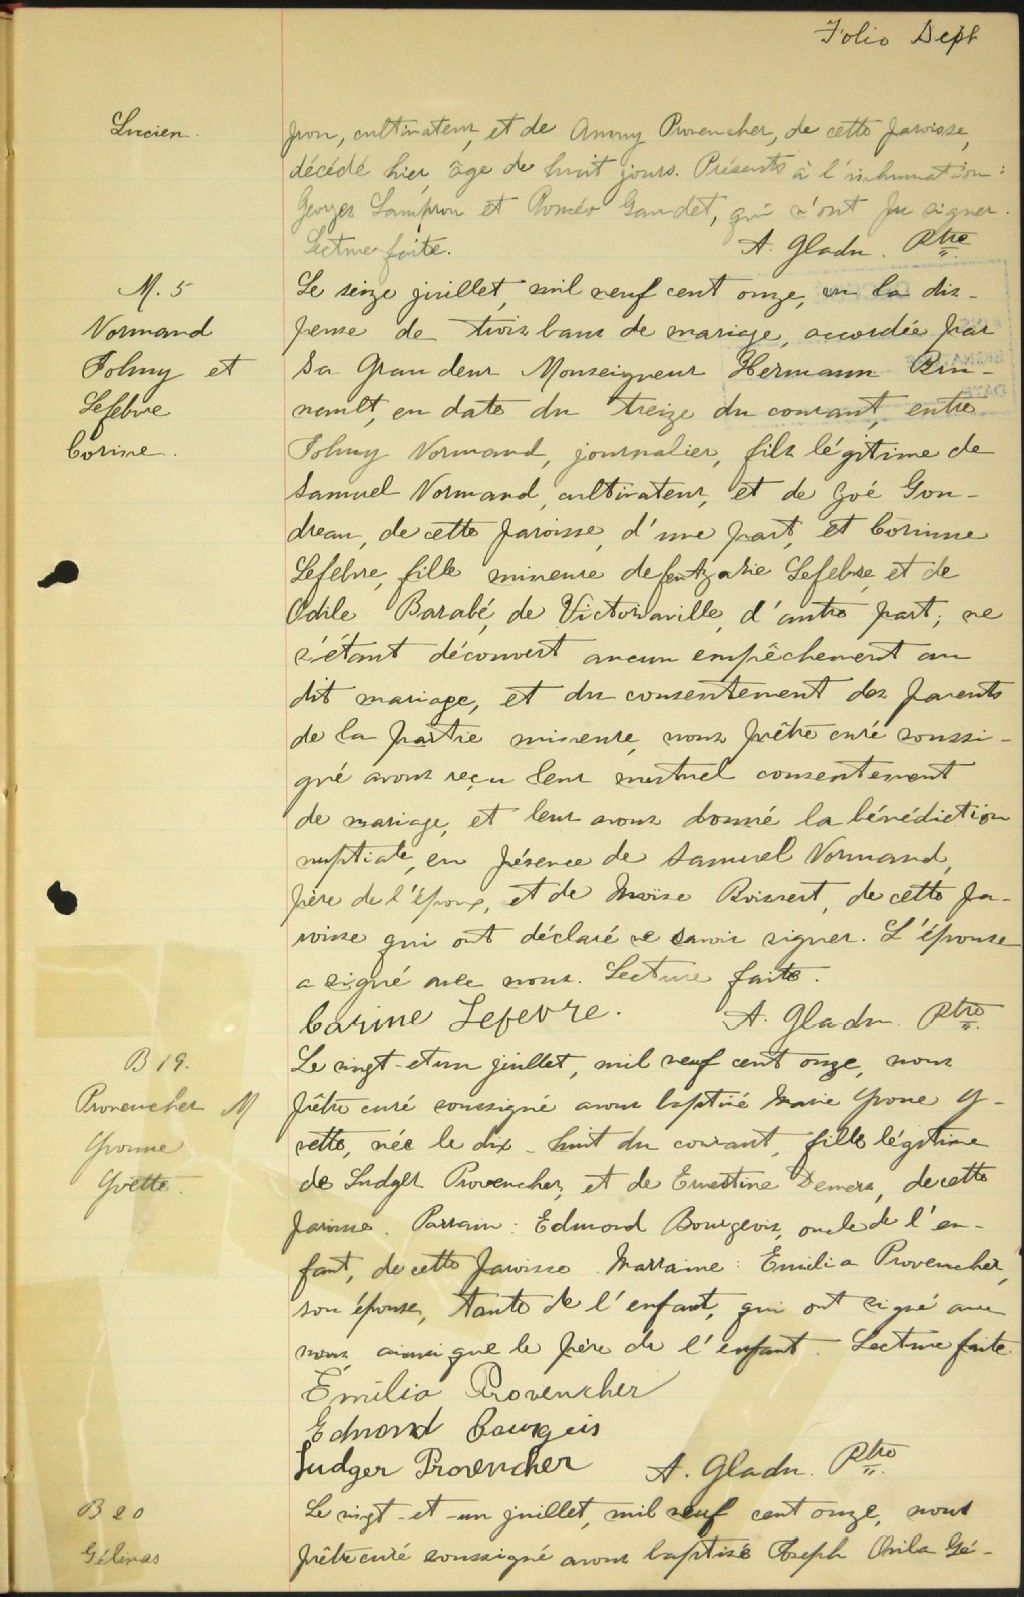 Folio Sept
Lucien.
pron, cultivateur, et de Amny Provencher, de cette paroisse,
décédé hier, âge de huit jours. Présents à l'inhumation :
Georges Lampron et Roméo Gaudet, qui n'ont pu signer.
Lecture faite. A. Gladu. Ptre
M. 5
Normand
Johny et
Lefebvre
Corine.
Le seize juillet, mil neuf cent onze, vu la dis-
pense de trois bans de mariage, accordée par
Sa Grandeur Monseigneur Hermann Bru-
neault, en date du treize du courant, entre
Johny Normand, journalier, fils légitime de
Samuel Normand, cultivateur, et de Zoé Gou-
dreau, de cette paroisse, d'une part, et Corinne
Lefebvre, fille mineure de feu Lefebvre et de
Odile Barabé, de Victoriaville, d'autre part; ne
s'étant découvert aucun empêchement au
dit mariage, et du consentement des parents
de la partie mineure, nous prêtre curé soussi-
gné avons reçu leur mutuel consentement
de mariage, et leur avons donné la bénédiction
nuptiale, en présence de Samuel Normand,
père de l'époux, et de Moïse Boisvert, de cette pa-
roisse qui ont déclaré ne savoir signer. L'épouse
a signé avec nous. Lecture faite.
Carine Lefevre. A. Gladu. Ptre
B 19.
Provencher M
Yvonne
Yvette.
Le vingt-et-un juillet, mil neuf cent onze, nous
prêtre curé soussigné avons baptisé Marie Yvone Y-
vette, née le dix-huit du courant, fille légitime
de Ludger Provencher, et de Ernestine Demers, de cette
paroisse. Parrain : Edmond Bourgeois, oncle de l'en-
fant, de cette paroisse. Marraine : Emilia Provencher,
son épouse, tante de l'enfant, qui ont signé avec
nous, ainsi que le père de l'enfant. Lecture faite.
Emilia Provencher
Edmond Bourgeis
Ludger Provencher A. Gladu. Ptre
B 20
Gélinas
Le vingt-et-un juillet, mil neuf cent onze, nous
prêtre curé soussigné avons baptisé Joseph Ovila Gé-